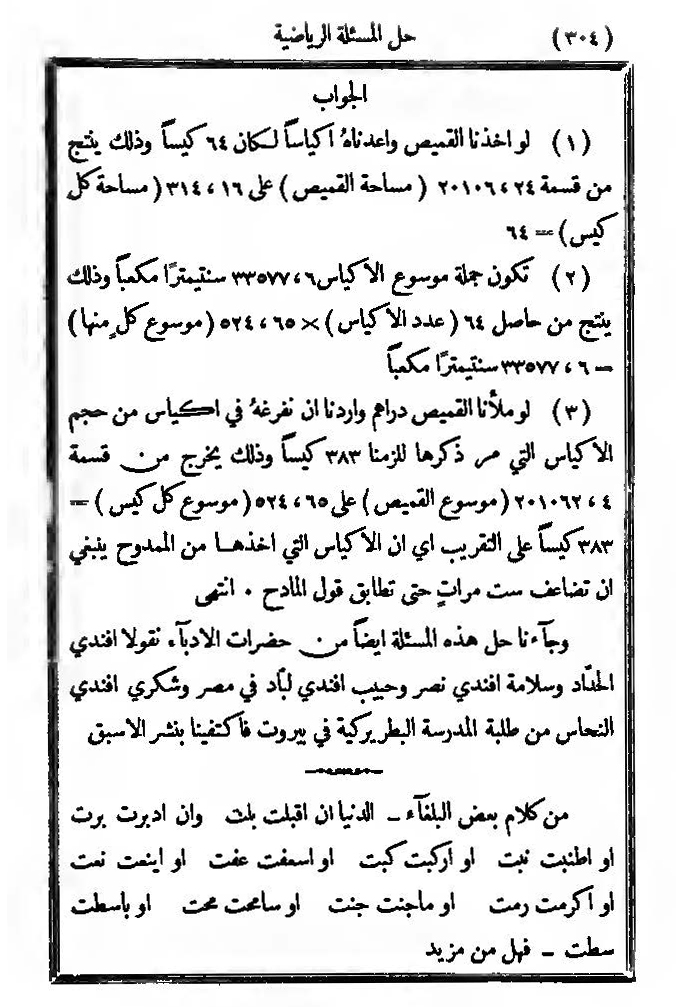 (٣٠٤) حل المسئلة الرياضية
الجواب
(١) لو اخذنا القميص واعدناهُ اكياساً لكان ٦٤ كيساً وذلك ينتج
من قسمة ٢٠١٠٦،٢٤ (مساحة القميص) على ٣١٤،١٦ (مساحة كل
كيس) = ٦٤
(٢) تكون جملة موسوع الاكياس ٣٣٥٧٧،٦ سنتيمترًا مكعباً وذلك
ينتج من حاصل ٦٤ (عدد الاكياس) × ٥٢٤،٦٥ (موسوع كلٍ منها)
= ٣٣٥٧٧،٦ سنتيمترًا مكعباً
(٣) لو ملأنا القميص دراهم واردنا ان نفرغهُ في اكياس من حجم
الاكياس التي مر ذكرها للزمنا ٣٨٣ كيساً وذلك يخرج من قسمة
٢٠١٠٦٢،٤ (موسوع القميص) على ٥٢٤،٦٥ (موسوع كل كيس) =
٣٨٣ كيساً على التقريب اي ان الاكياس التي اخذها من الممدوح ينبغي
ان تضاعف ست مراتٍ حتى تطابق قول المادح ٠ انتهى
وجآءنا حل هذه المسئلة ايضاً من حضرات الادبآء نقولا افندي
الحدّاد وسلامة افندي نصر وحبيب افندي لبّاد في مصر وشكري افندي
النحاس من طلبة المدرسة البطريركية في بيروت فاكتفينا بنشر الاسبق
من كلام بعض البلغآء – الدنيا ان اقبلت بلت وان ادبرت برت
او اطنبت نبت او اركبت كبت او اسعفت عفت او اينعت نعت
او اكرمت رمت او ماجنت جنت او سامحت محت او باسطت
سطت – فهل من مزيد